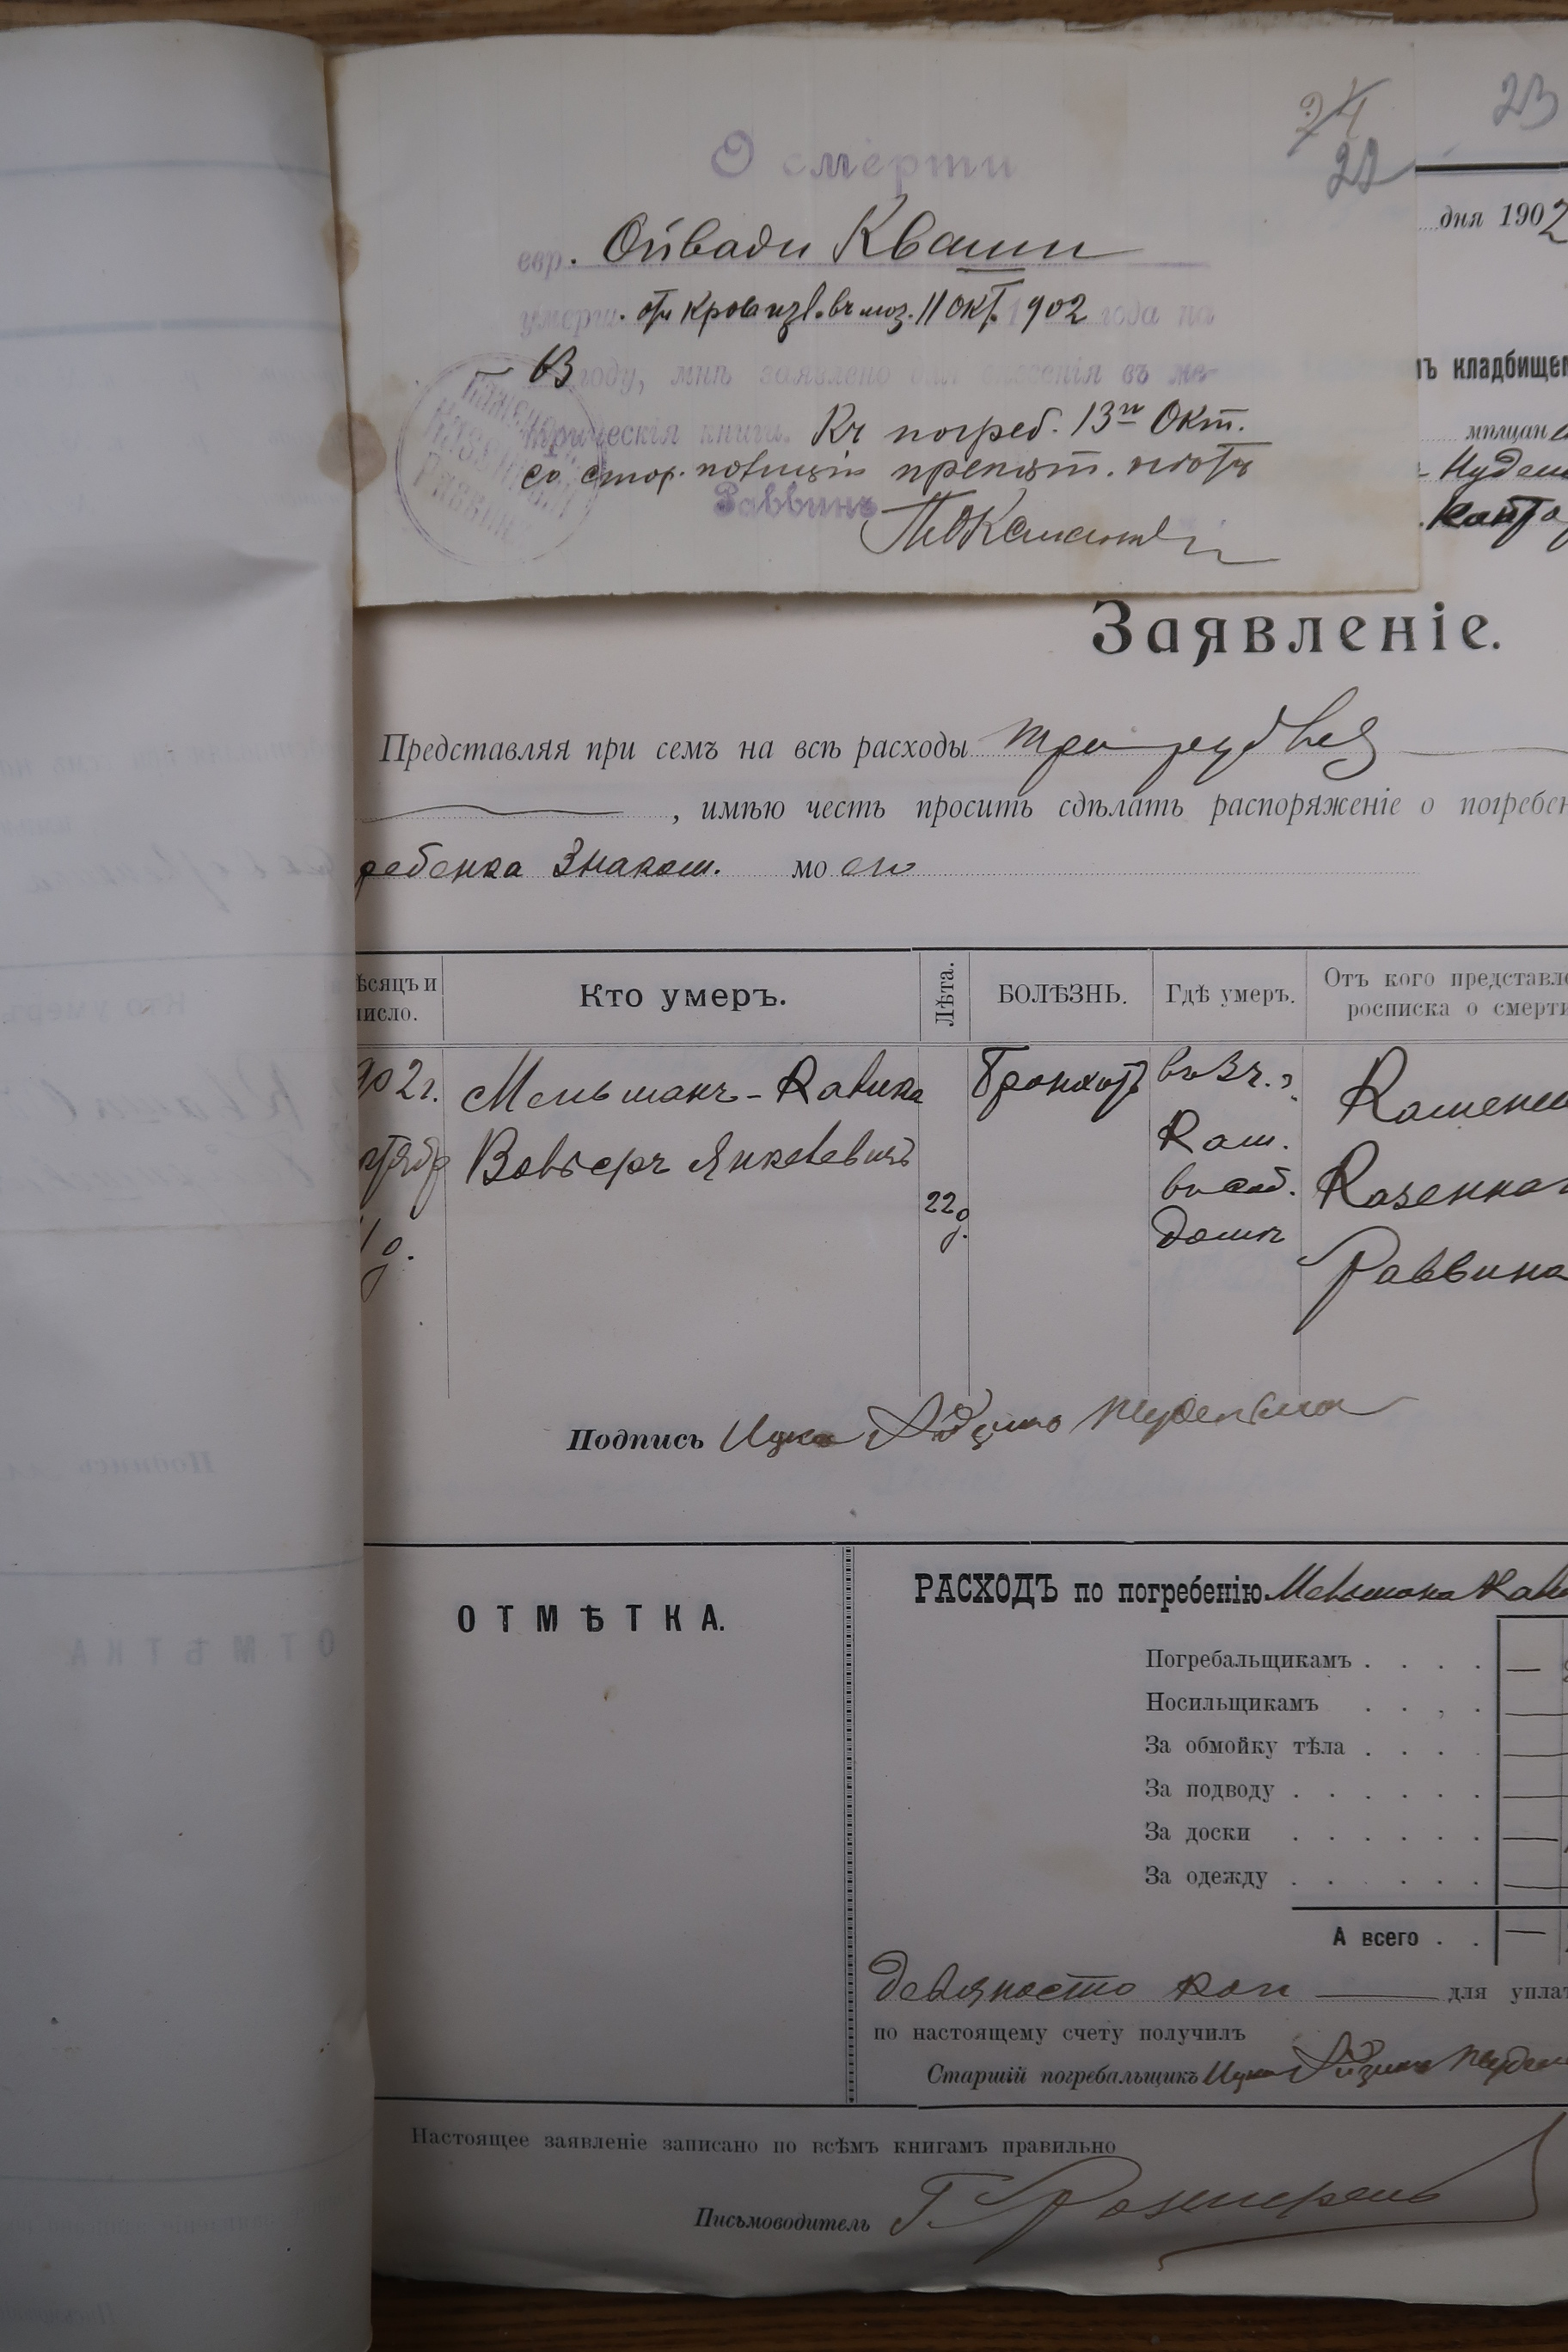 24
22
23
О смерти
евр. Овади Кваши
умерш. отъ кровоизл. въ мозг. 11 окт. 1902 года на
63 году, мнѣ заявлено для внесенія въ ме-
трическія книги. Къ погреб. 13го Окт.
со стор. полиціи препятст. нѣтъ
Раввинъ
дня 1902
мъ кладбищем
мѣщан
Нуде
Заявленіе.
Представляя при семъ на всѣ расходы три рубля
, имѣю честь просить сдѣлать распоряженіе о погребен
ребенка знаком. моего
ѣсяцъ и число. Кто умеръ. Лѣта. БОЛѢЗНЬ. Гдѣ умеръ. Отъ кого представле росписка о смерти
902г. Мельманъ-Кавика Бронхитъ въ
Вольфъ Янкелевичъ Кам. Каменс
22д. въ соб. Казеннаг
11 д. домѣ Раввина
Подпись Ицко Айзикъ Нудельман
ОТМѢТКА.
РАСХОДЪ по погребенію Мельмана Кави
Погребальщикамъ
Носильщикамъ
За обмойку тѣла
За подводу
За доски
За одежду
А всего
девяносто коп для уплат
по настоящему счету получилъ
Старшій погребальщикъ Ицко Айзикъ Нудель
Настоящее заявленіе записано по всѣмъ книгамъ правильно
Письмоводитель Г.